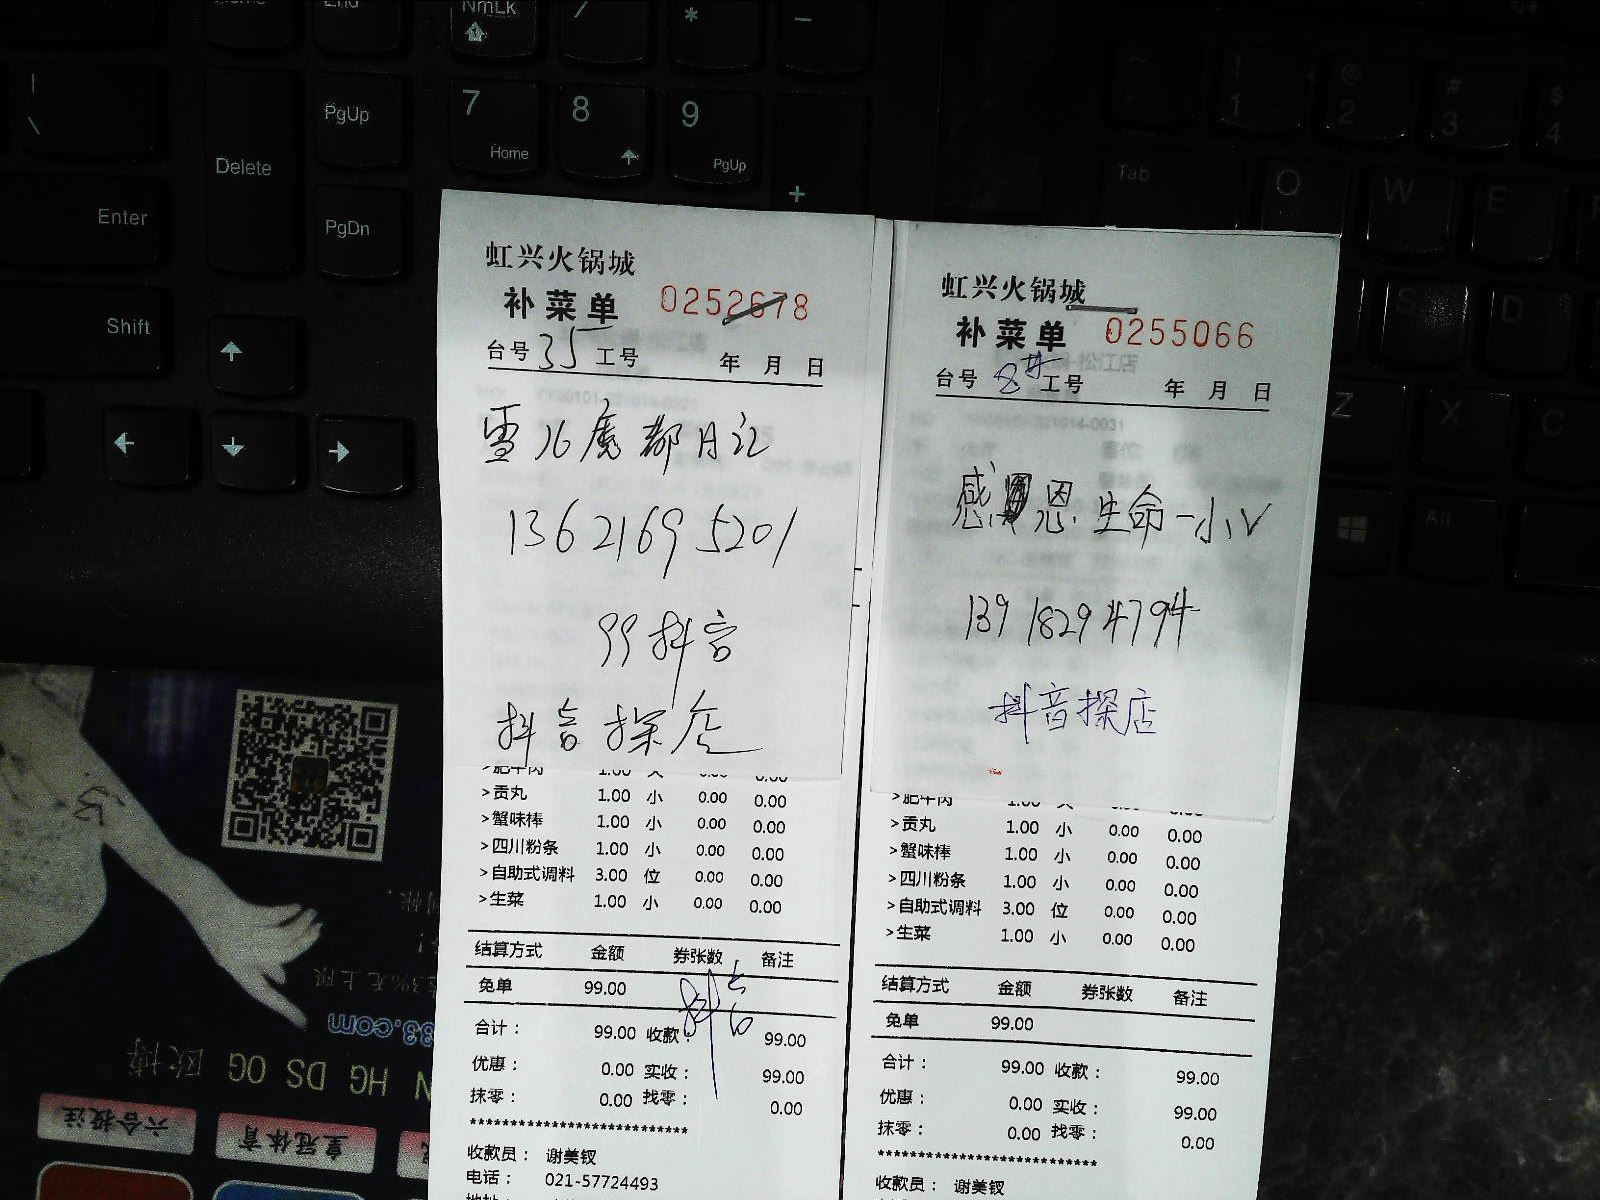 NmLk
/
*
-
7
Home
8
9
PgUp
+
|
\
PgUp
Delete
Enter
PgDn
Shift
~
!
1
@
2
#
3
$
4
Tab
Q
W
E
S
D
Z
X
C
Alt
虹兴火锅城
补菜单 0252678
台号 35 工号 年 月 日
雪儿魔都日记
13621695201
99抖音
抖音探店
>肥牛肉 1.00 大 0.00 0.00
>贡丸 1.00 小 0.00 0.00
>蟹味棒 1.00 小 0.00 0.00
>四川粉条 1.00 小 0.00 0.00
>自助式调料 3.00 位 0.00 0.00
>生菜 1.00 小 0.00 0.00
结算方式 金额 券张数 备注
免单 99.00
抖音
合计： 99.00 收款： 99.00
优惠： 0.00 实收： 99.00
抹零： 0.00 找零： 0.00
**************************
收款员： 谢美钗
电话： 021-57724493
虹兴火锅城
补菜单 0255066
台号 8# 工号 年 月 日
感恩生命一小V
13918294794
抖音探店
>肥牛肉 1.00 大 0.00 0.00
>贡丸 1.00 小 0.00 0.00
>蟹味棒 1.00 小 0.00 0.00
>四川粉条 1.00 小 0.00 0.00
>自助式调料 3.00 位 0.00 0.00
>生菜 1.00 小 0.00 0.00
结算方式 金额 券张数 备注
免单 99.00
合计： 99.00 收款： 99.00
优惠： 0.00 实收： 99.00
抹零： 0.00 找零： 0.00
**************************
收款员： 谢美钗
HG DS OG 欧博
皇冠体育
六合投注